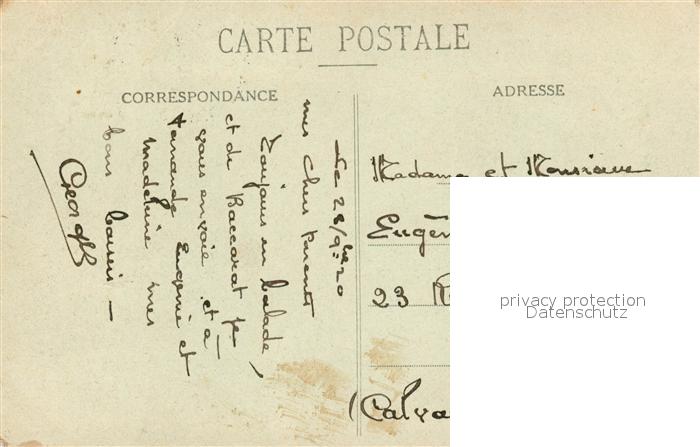 CARTE POSTALE
CORRESPONDANCE
ADRESSE
Le 23/9bre 20
mes chers Parents
Toujours en balade,
et de Baccarat je
vous envoie et à
Fernande Eugenie et
Madeleine mes
bons baisers —
Georges
Madame et Monsieur
Eugèn
23 R
(Calva
privacy protection
Datenschutz